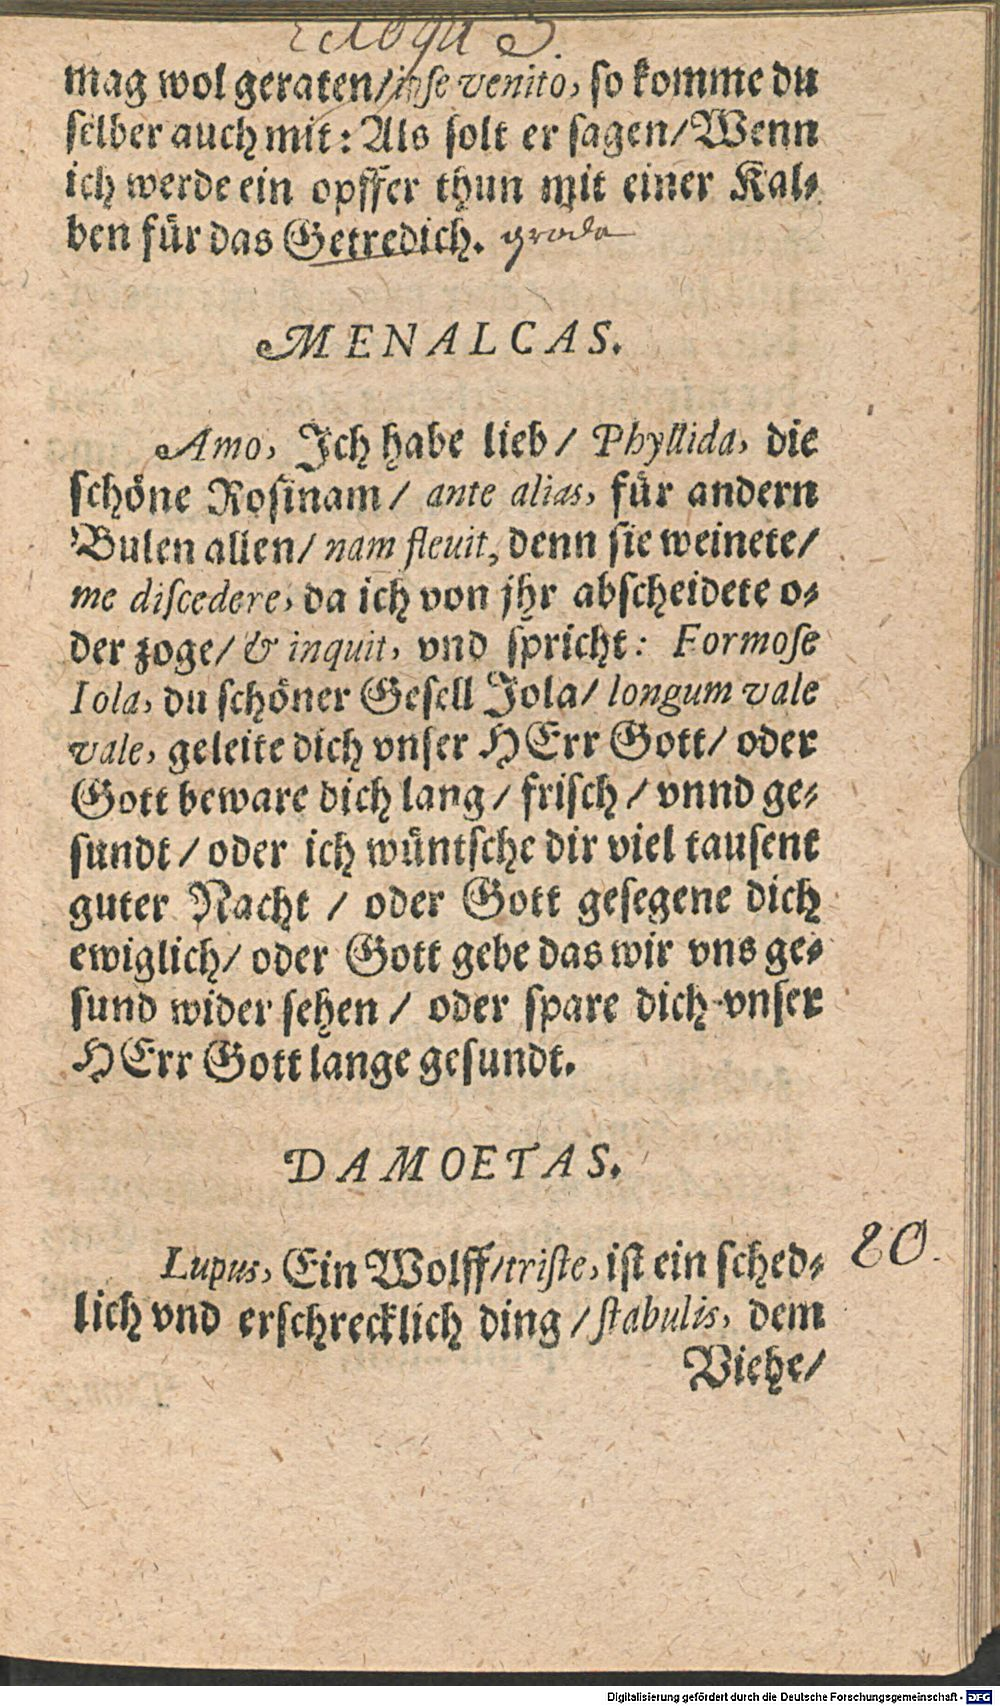 Eclog. 3.
mag wol geraten/ ipse venito, so komme du
selber auch mit: Als solt er sagen/ Wenn
ich werde ein opffer thun mit einer Kal-
ben für das Getredich.
MENALCAS.
Amo, Ich habe lieb/ Phyllida, die
schöne Rosinam/ ante alias, für andern
Bulen allen/ nam fleuit, denn sie weinete/
me discedere, da ich von jhr abscheidete o-
der zoge/ & inquit, vnd spricht: Formose
Iola, du schöner Gesell Jola/ longum vale
vale, geleite dich vnser HErr Gott/ oder
Gott beware dich lang/ frisch/ vnnd ge-
sundt/ oder ich wüntsche dir viel tausent
guter Nacht / oder Gott gesegene dich
ewiglich/ oder Gott gebe das wir vns ge-
sund wider sehen / oder spare dich vnser
HErr Gott lange gesundt.
DAMOETAS.
Lupus, Ein Wolff/ triste, ist ein sched- 80.
lich vnd erschrecklich ding / stabulis, dem
Viehe/
Digitalisierung gefördert durch die Deutsche Forschungsgemeinschaft - DFG